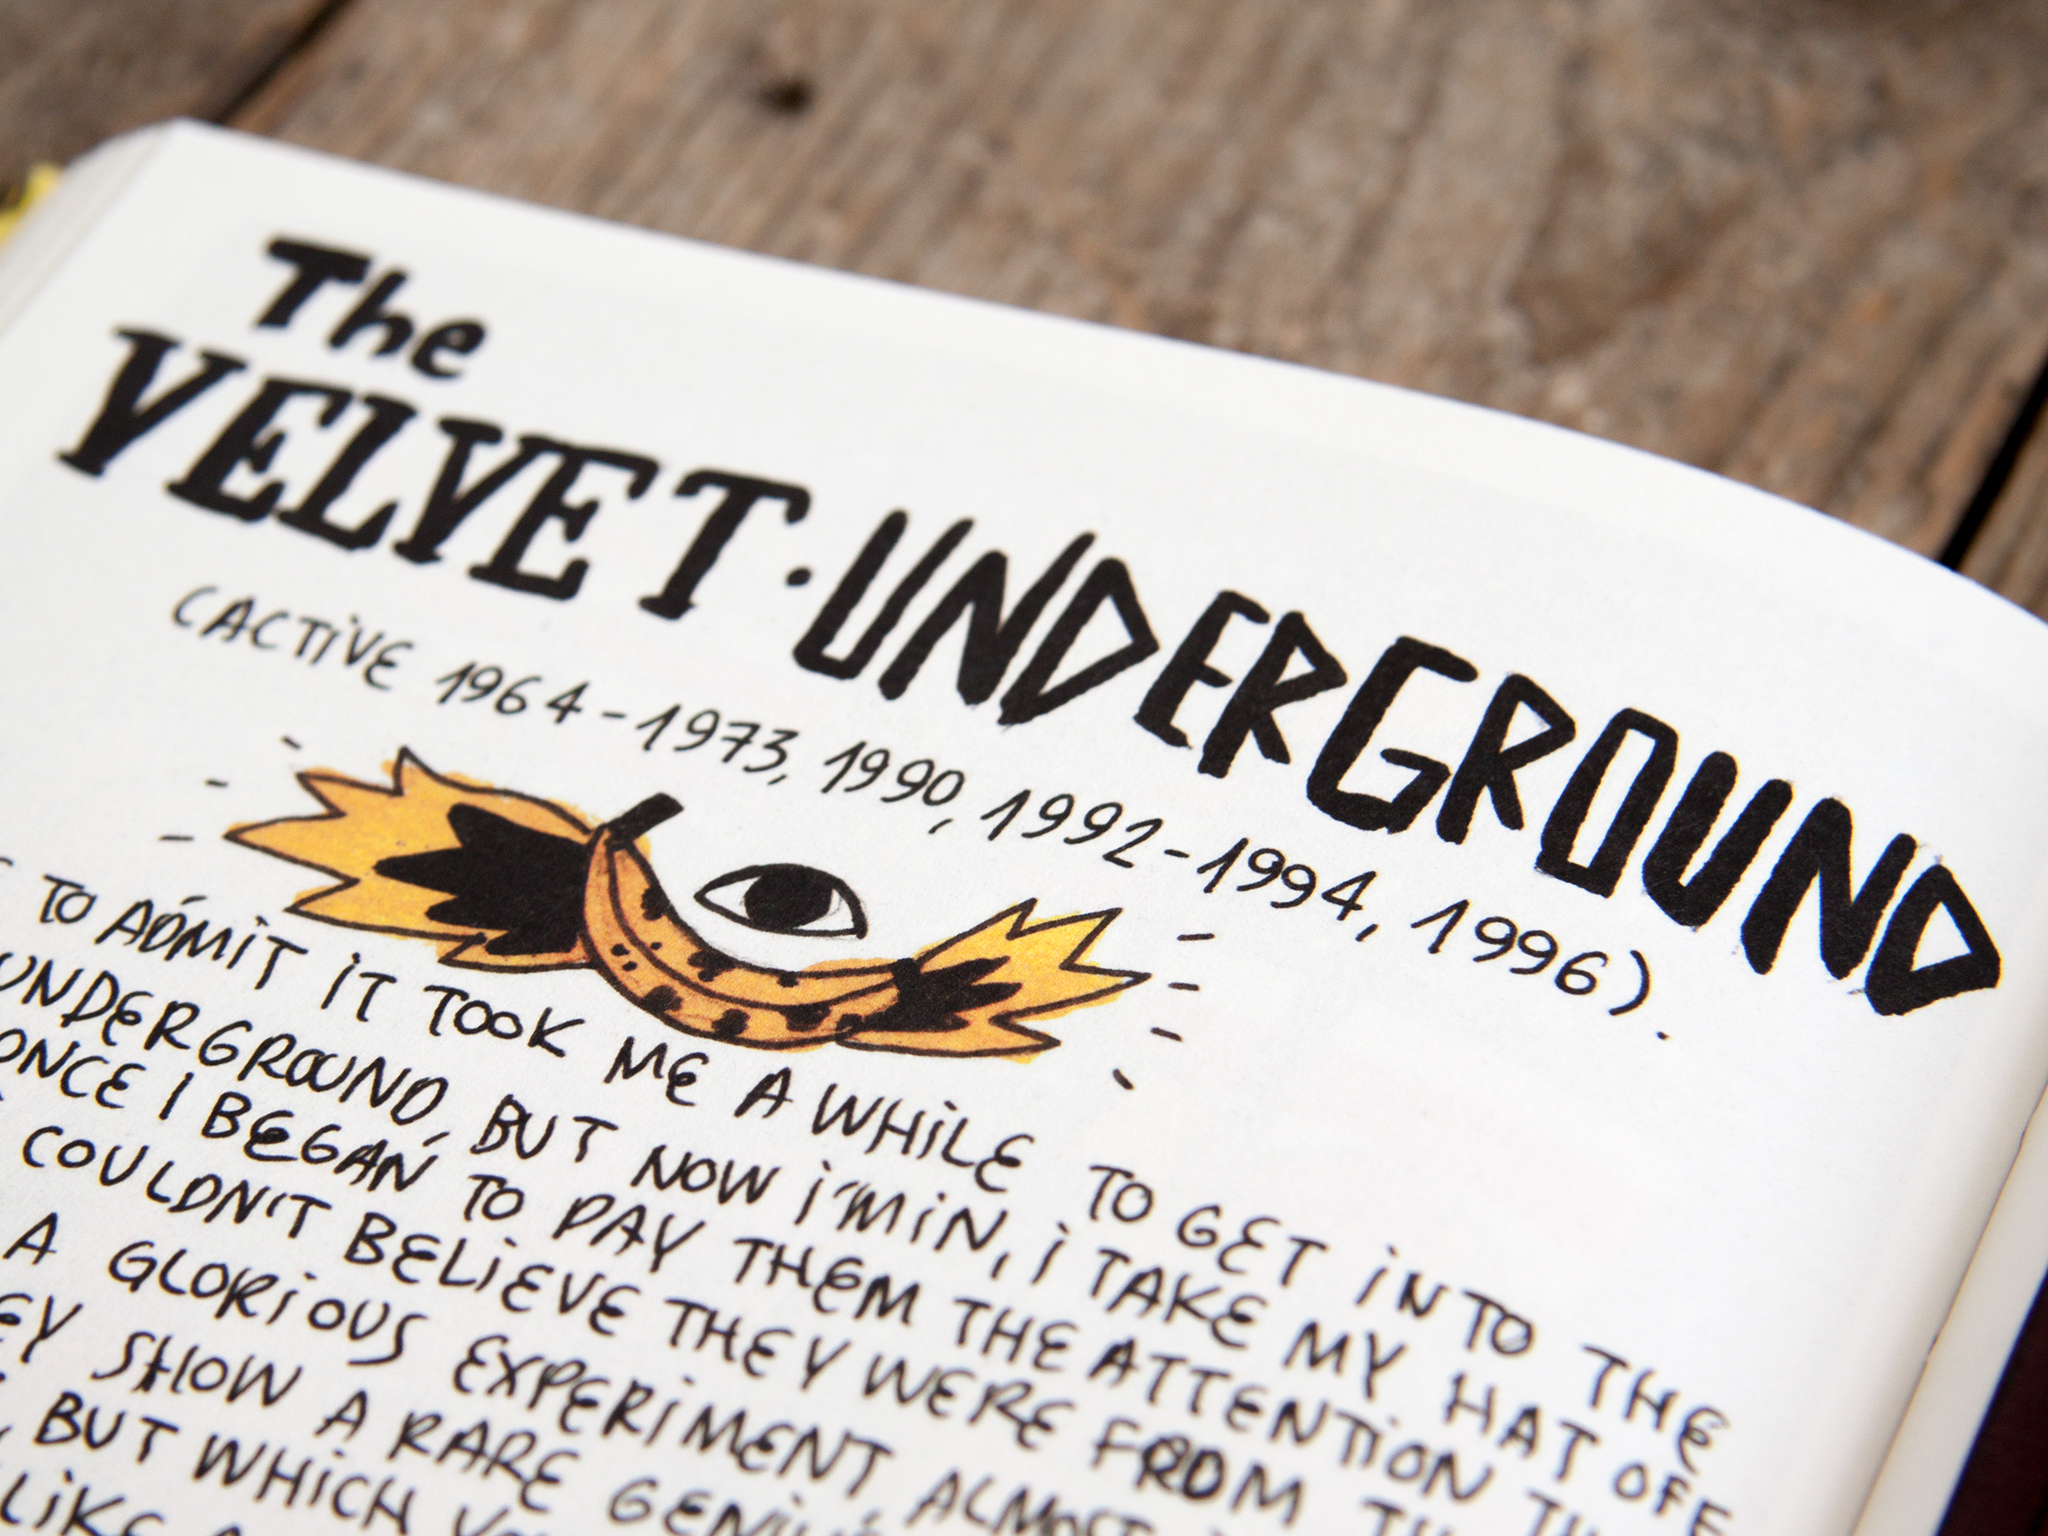 The
VELVET · UNDERGROUND
(ACTIVE 1964-1973, 1990, 1992-1994, 1996).
TO ADMIT IT TOOK ME A WHILE TO GET INTO THE
UNDERGROUND, BUT NOW I'M IN, I TAKE MY HAT OFF
ONCE I BEGAN TO PAY THEM THE ATTENTION
COULDN'T BELIEVE THEY WERE FROM
A GLORIOUS EXPERIMENT, ALMOST
SHOW A RARE
BUT WHICH
LIKE